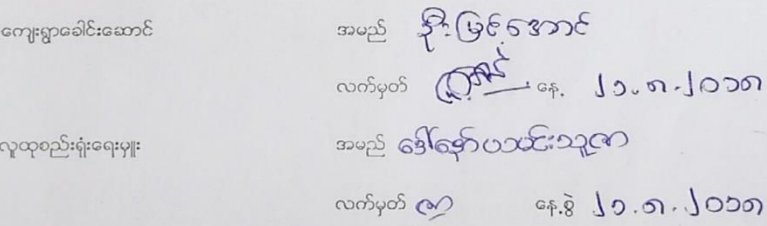 ကျေးရွာခေါင်းဆောင် အမည် ဦးမြင့်အောင်
လက်မှတ် နေ့ ၂၁.၈.၂၀၁၈
လူထုစည်းရုံးရေးမှူး အမည် ဒေါ်နော်ယမင်းသူဇာ
လက်မှတ် ဇာ နေ့စွဲ ၂၁.၈.၂၀၁၈